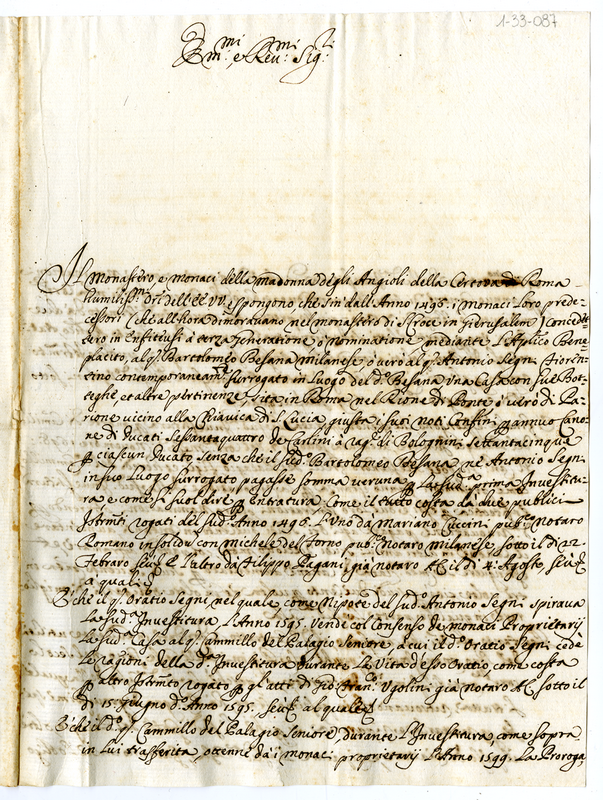 1-33-087
Em.mi e Rev.mi Sig.ri
Il Monastero, e monaci della Madonna degli Angioli della Certosa di Roma
humiliss.mi Ori dell'EE VV. espongono che sin dall'Anno 1495. i monaci loro prede-
cessori (che all'hora dimoravano nel monastero di S. Croce in Gierusalem) concedet-
tero in Enfiteusi à terza generatione, ò nominatione mediante l'Ap.lico Bene-
placito, al q. Bartolomeo Besana Milanese, ò vero al q. Antonio Segni fioren-
tino contemporaneam.te surrogato in luogo del d.o Besana una Casa con sue Bot-
teghe, et altre pertinenze sita in Roma nel Rione di Ponte ò vero di Pa-
rione vicino alla Chiavica di S. Lucia giusta i suoi noti Confini p annuo Cano-
ne di Ducati Sessantaquattro de Carlini à rag.e di Bolognini settantacinque
p ciascun Ducato senza che il sud.o Bartolomeo Besana, nè Antonio Segni
in suo luogo surrogato pagasse somma veruna p la sud.a prima Investitu-
ra e come si suol dire p entratura, Come il tutto costa da due publici
Istrom.ti rogati del sud.o Anno 1496. L'uno da Mariano Cuccini pub.o Notaro
Romano insolidu con Michele del Torno pub.o Notaro milanese, sotto il dì 22
Febraro, e l'altro da Filippo Pagani già notaro AC il dì 4. Agosto,
a quali
E che il q. Oratio Segni nel quale, come Nipote del sud.o Antonio Segni spirava
la sud.a Investitura, l'Anno 1595. Vendè col Consenso de monaci Proprietarij
la sud.a Casa al q. Cammillo del Palagio Seniore, a cui il d.o Oratio Segni cedè
le ragioni della d.a Investitura durante la Vita d'esso Oratio, come costa
p altro Istrom.to rogato p gl'atti di Gio: Fran.co Ugolini già notaro AC sotto il
dì 15. Giugno d.o Anno 1595. al quale
E che il d.o q. Cammillo del Palagio Seniore, durante l'Investitura, come sopra
in lui trasferita, ottenne da i monaci proprietarij l'Anno 1599. la Proroga,